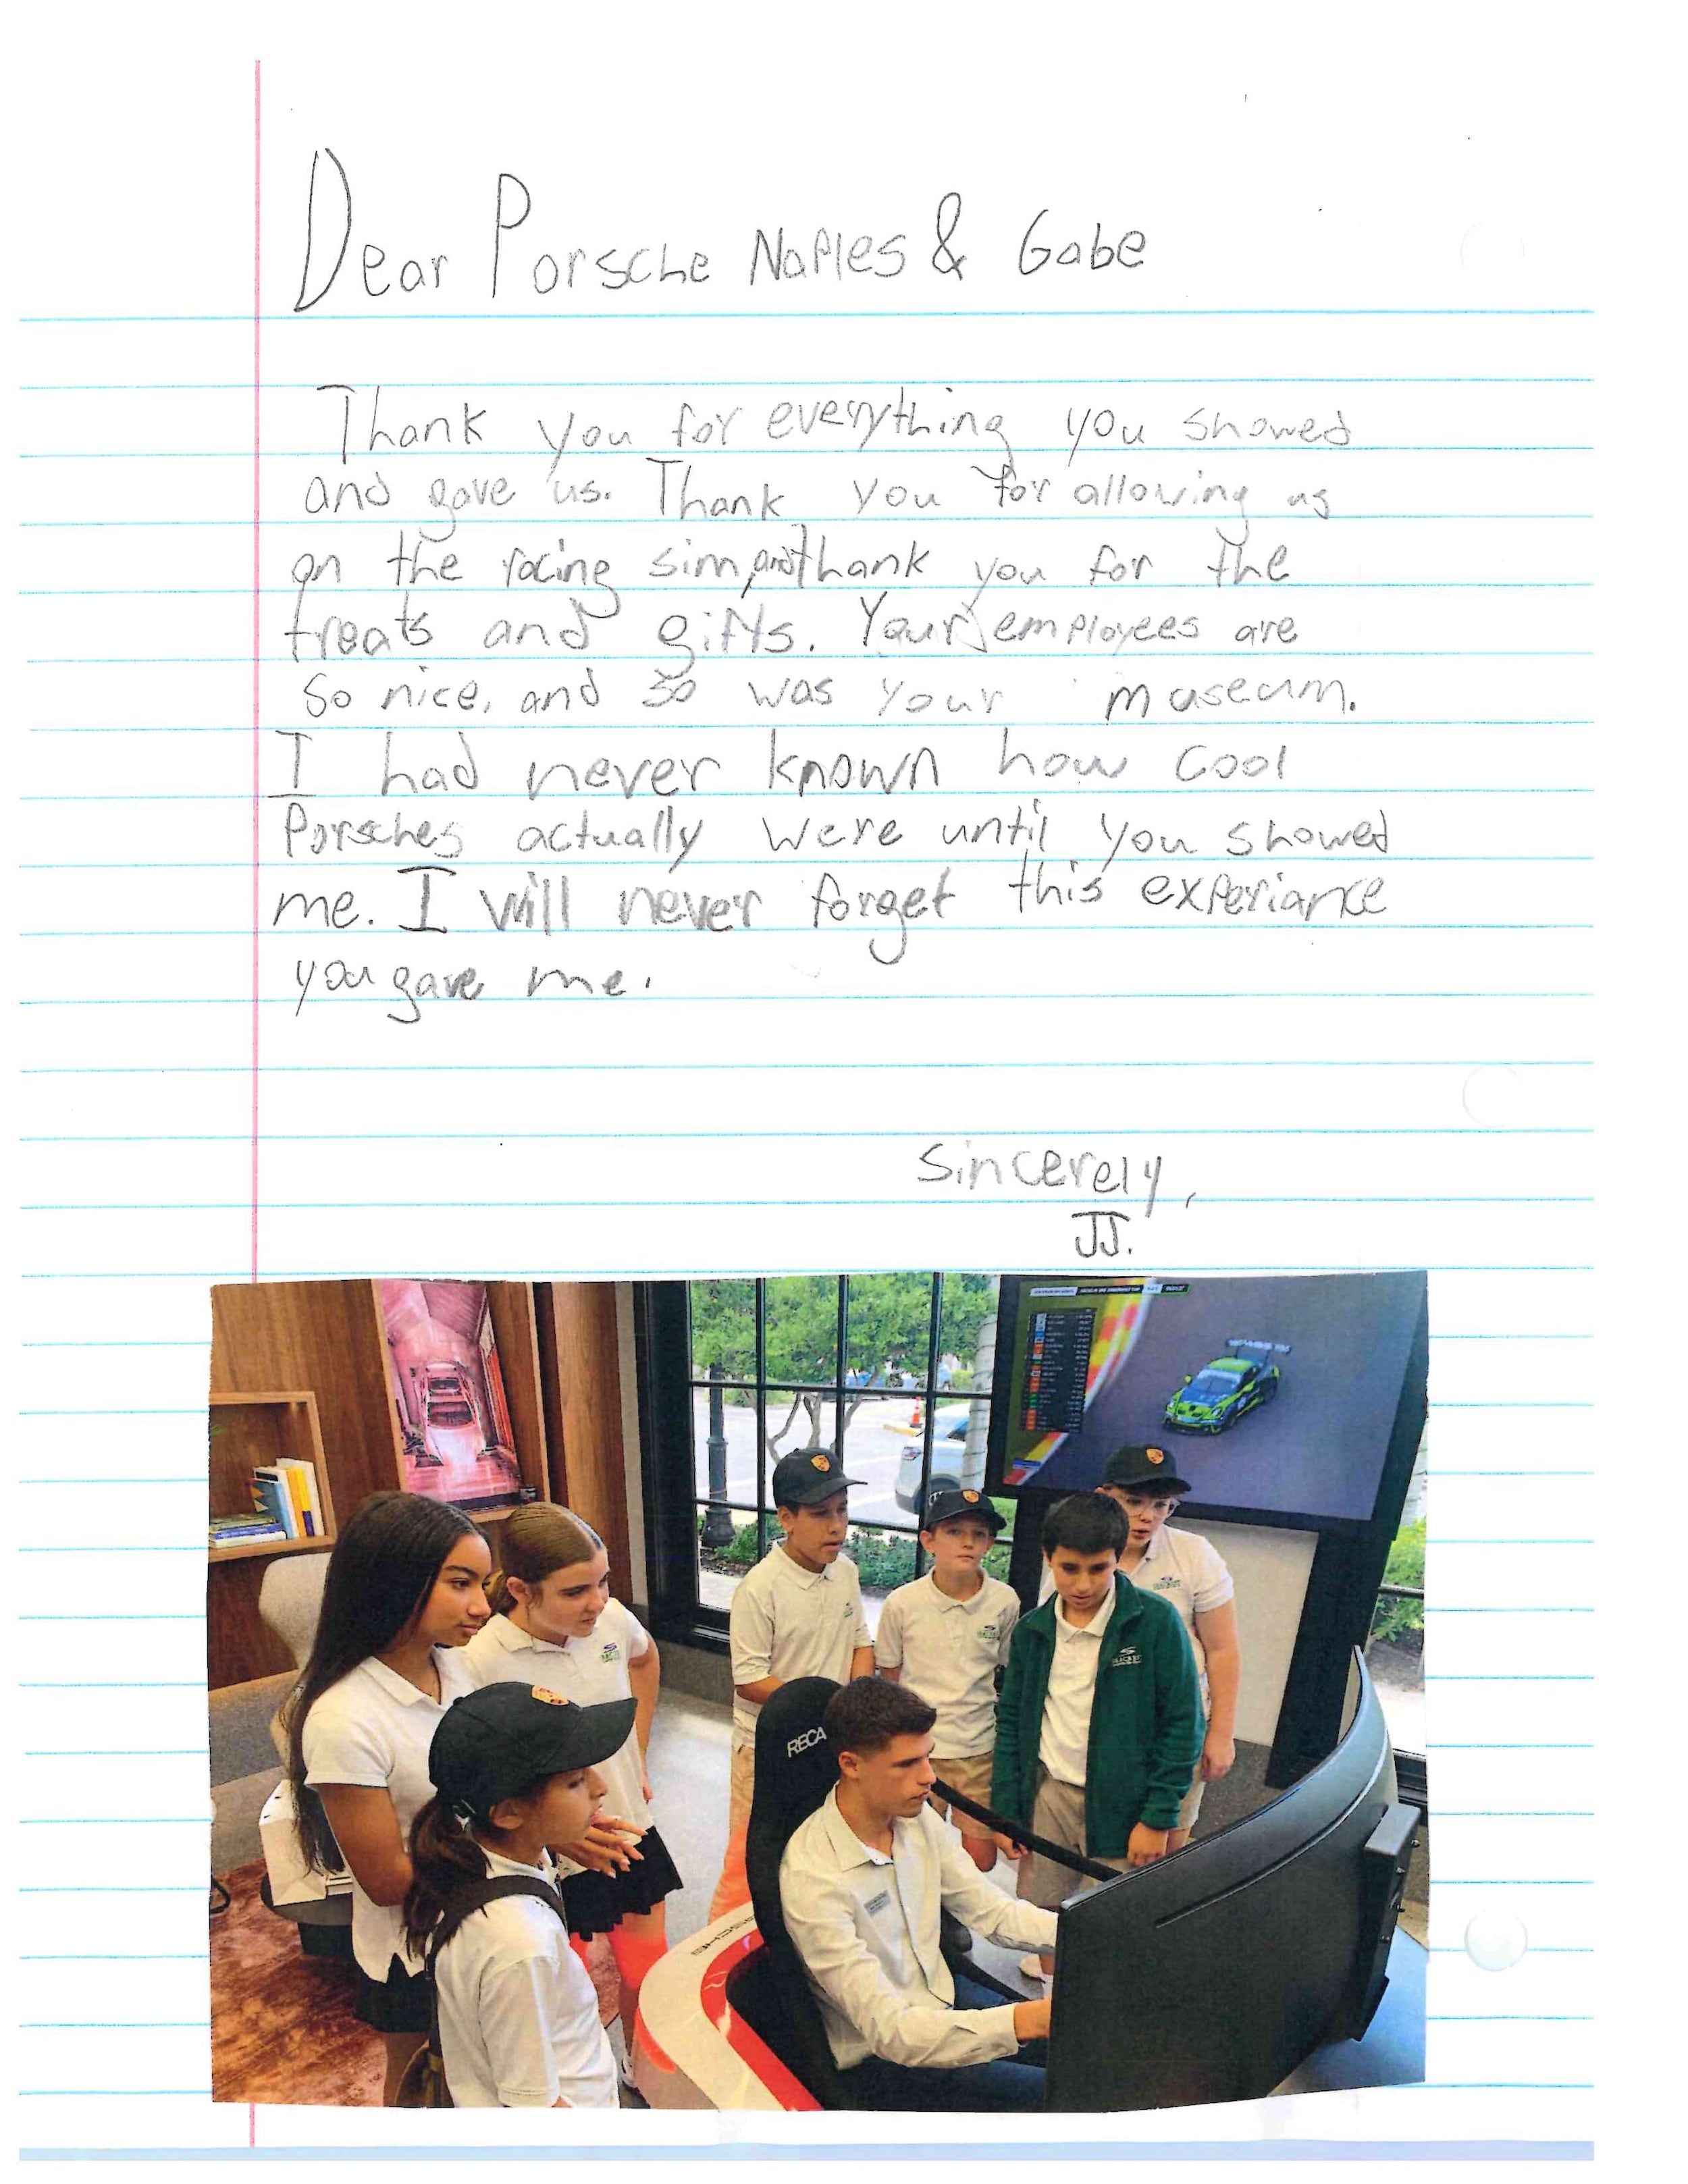 Dear Porsche Naples & Gabe
Thank you for everything you showed
and gave us. Thank you for allowing us
on the racing sim, and thank you for the
treats and gifts. Your employees are
so nice, and so was your museum.
I had never known how cool
Porsches actually were until you showed
me. I will never forget this experiance
you gave me.
Sincerely,
JJ.
RECA